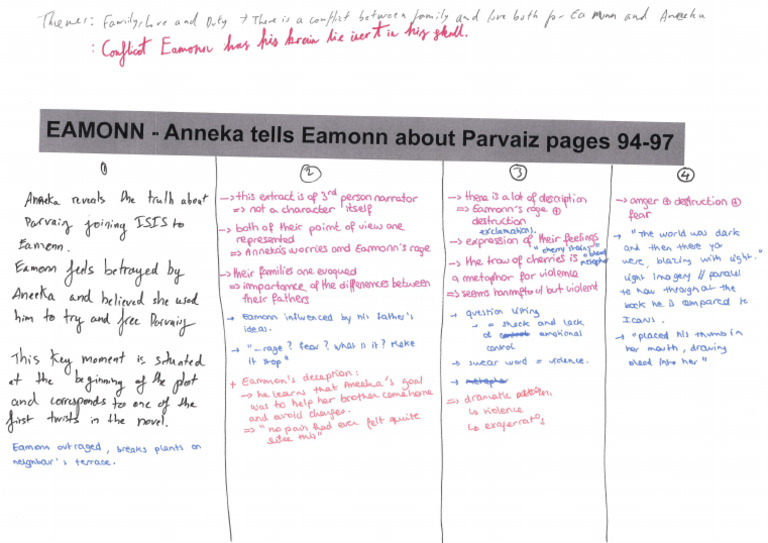 Themes: Family, love and Duty → There is a conflict between family and love both for Eamonn and Aneeka
: Conflict Eamonn has his brain lie inert in his skull.
EAMONN - Anneka tells Eamonn about Parvaiz pages 94-97
①
Aneeka reveals the truth about
Parvaiz joining ISIS to
Eamonn.
Eamonn feels betrayed by
Aneeka and believed she used
him to try and free Parvaiz
This key moment is situated
at the beginning of the plot
and corresponds to one of the
first twists in the novel.
Eamonn outraged, breaks plants on
neighbour's terrace.
②
→ this extract is of 3rd person narrator
⇒ not a character itself
→ both of their point of view are
represented
⇒ Aneeka's worries and Eamonn's rage
→ their families are evoqued
⇒ importance of the differences between
their fathers
→ Eamonn influenced by his father's
ideas.
→ "_rage? fear? what is it? Make
it stop"
+ Eammon's deception:
→ he learns that Aneeka's goal
was to help her brother come home
and avoid charges.
⇒ "no pain had ever felt quite
like this"
③
→ there is a lot of description
⇒ Eamonn's rage ⊕
destruction
exclamations!
→ expression of their feelings
"cherry stains" "blood"
→ the traw of cherries is metaphor
a metaphor for violence
⇒ seems harmful but violent
→ question using
→ = shock and lack
of control emotional
control
→ swear word = violence.
→ metaphor
⇒ dramatic
↳ violence
↳ exagerratos
④
→ anger ⊕ destruction ⊕
fear
→ "The world was dark
and then there you
were, blazing with light."
light imagery // parallel
to how throughout the
book he is compared to
Icarus.
→ "placed his thumb in
her mouth, drawing
blood into her"